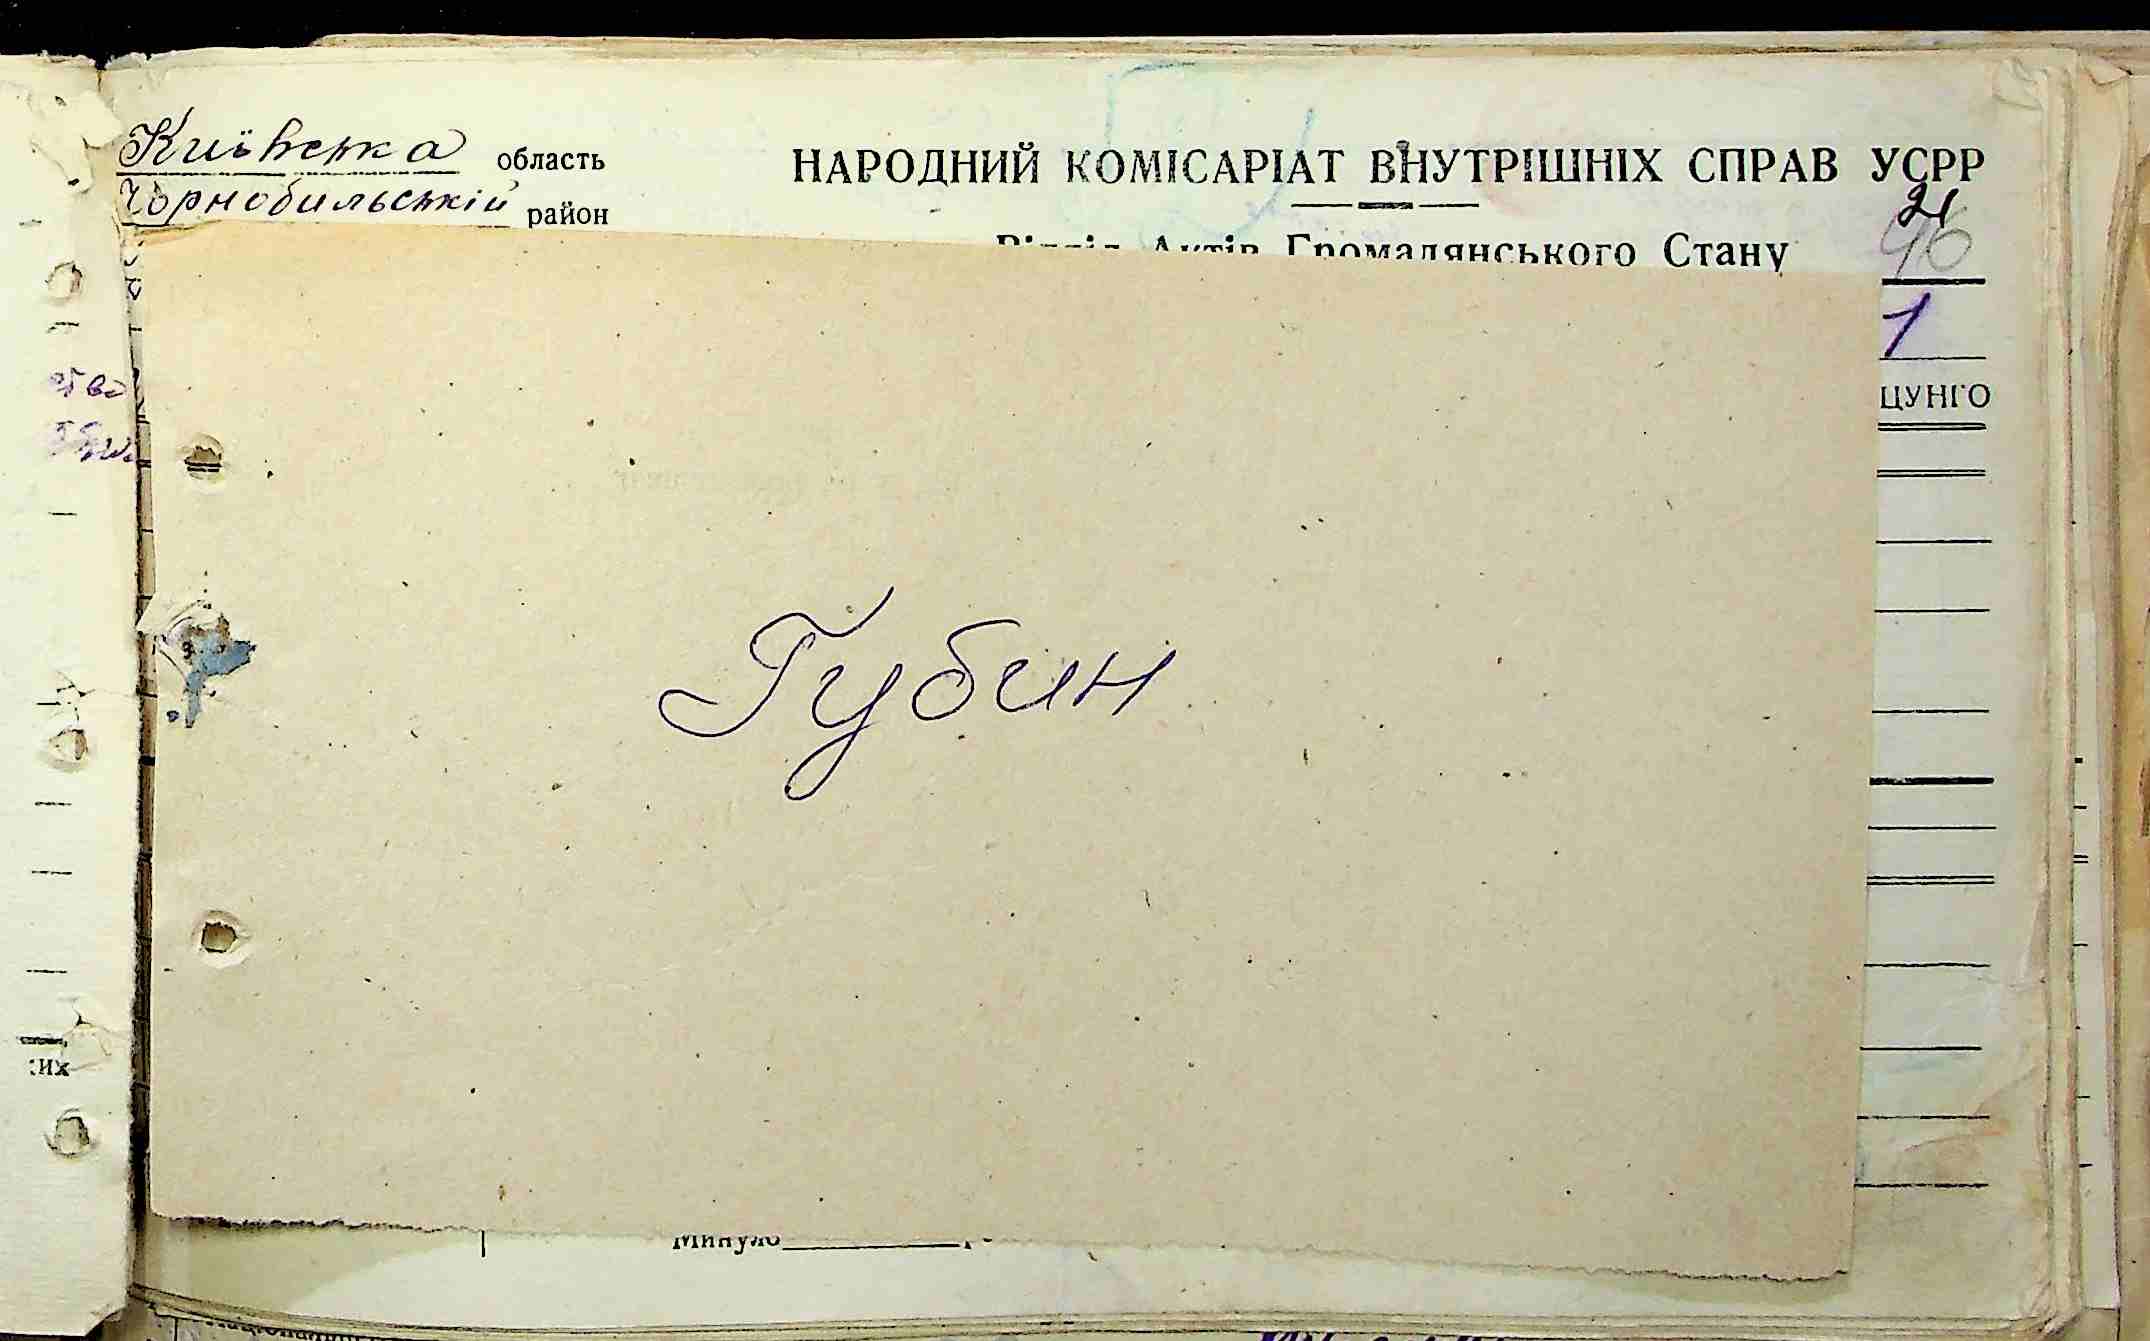 Київська область
Чорнобильській район
НАРОДНИЙ КОМІСАРІАТ ВНУТРІШНІХ СПРАВ УСРР
21
96
Відділ Актів Громадянського Стану
1
ЦУНГО
Губин
Минуло
их